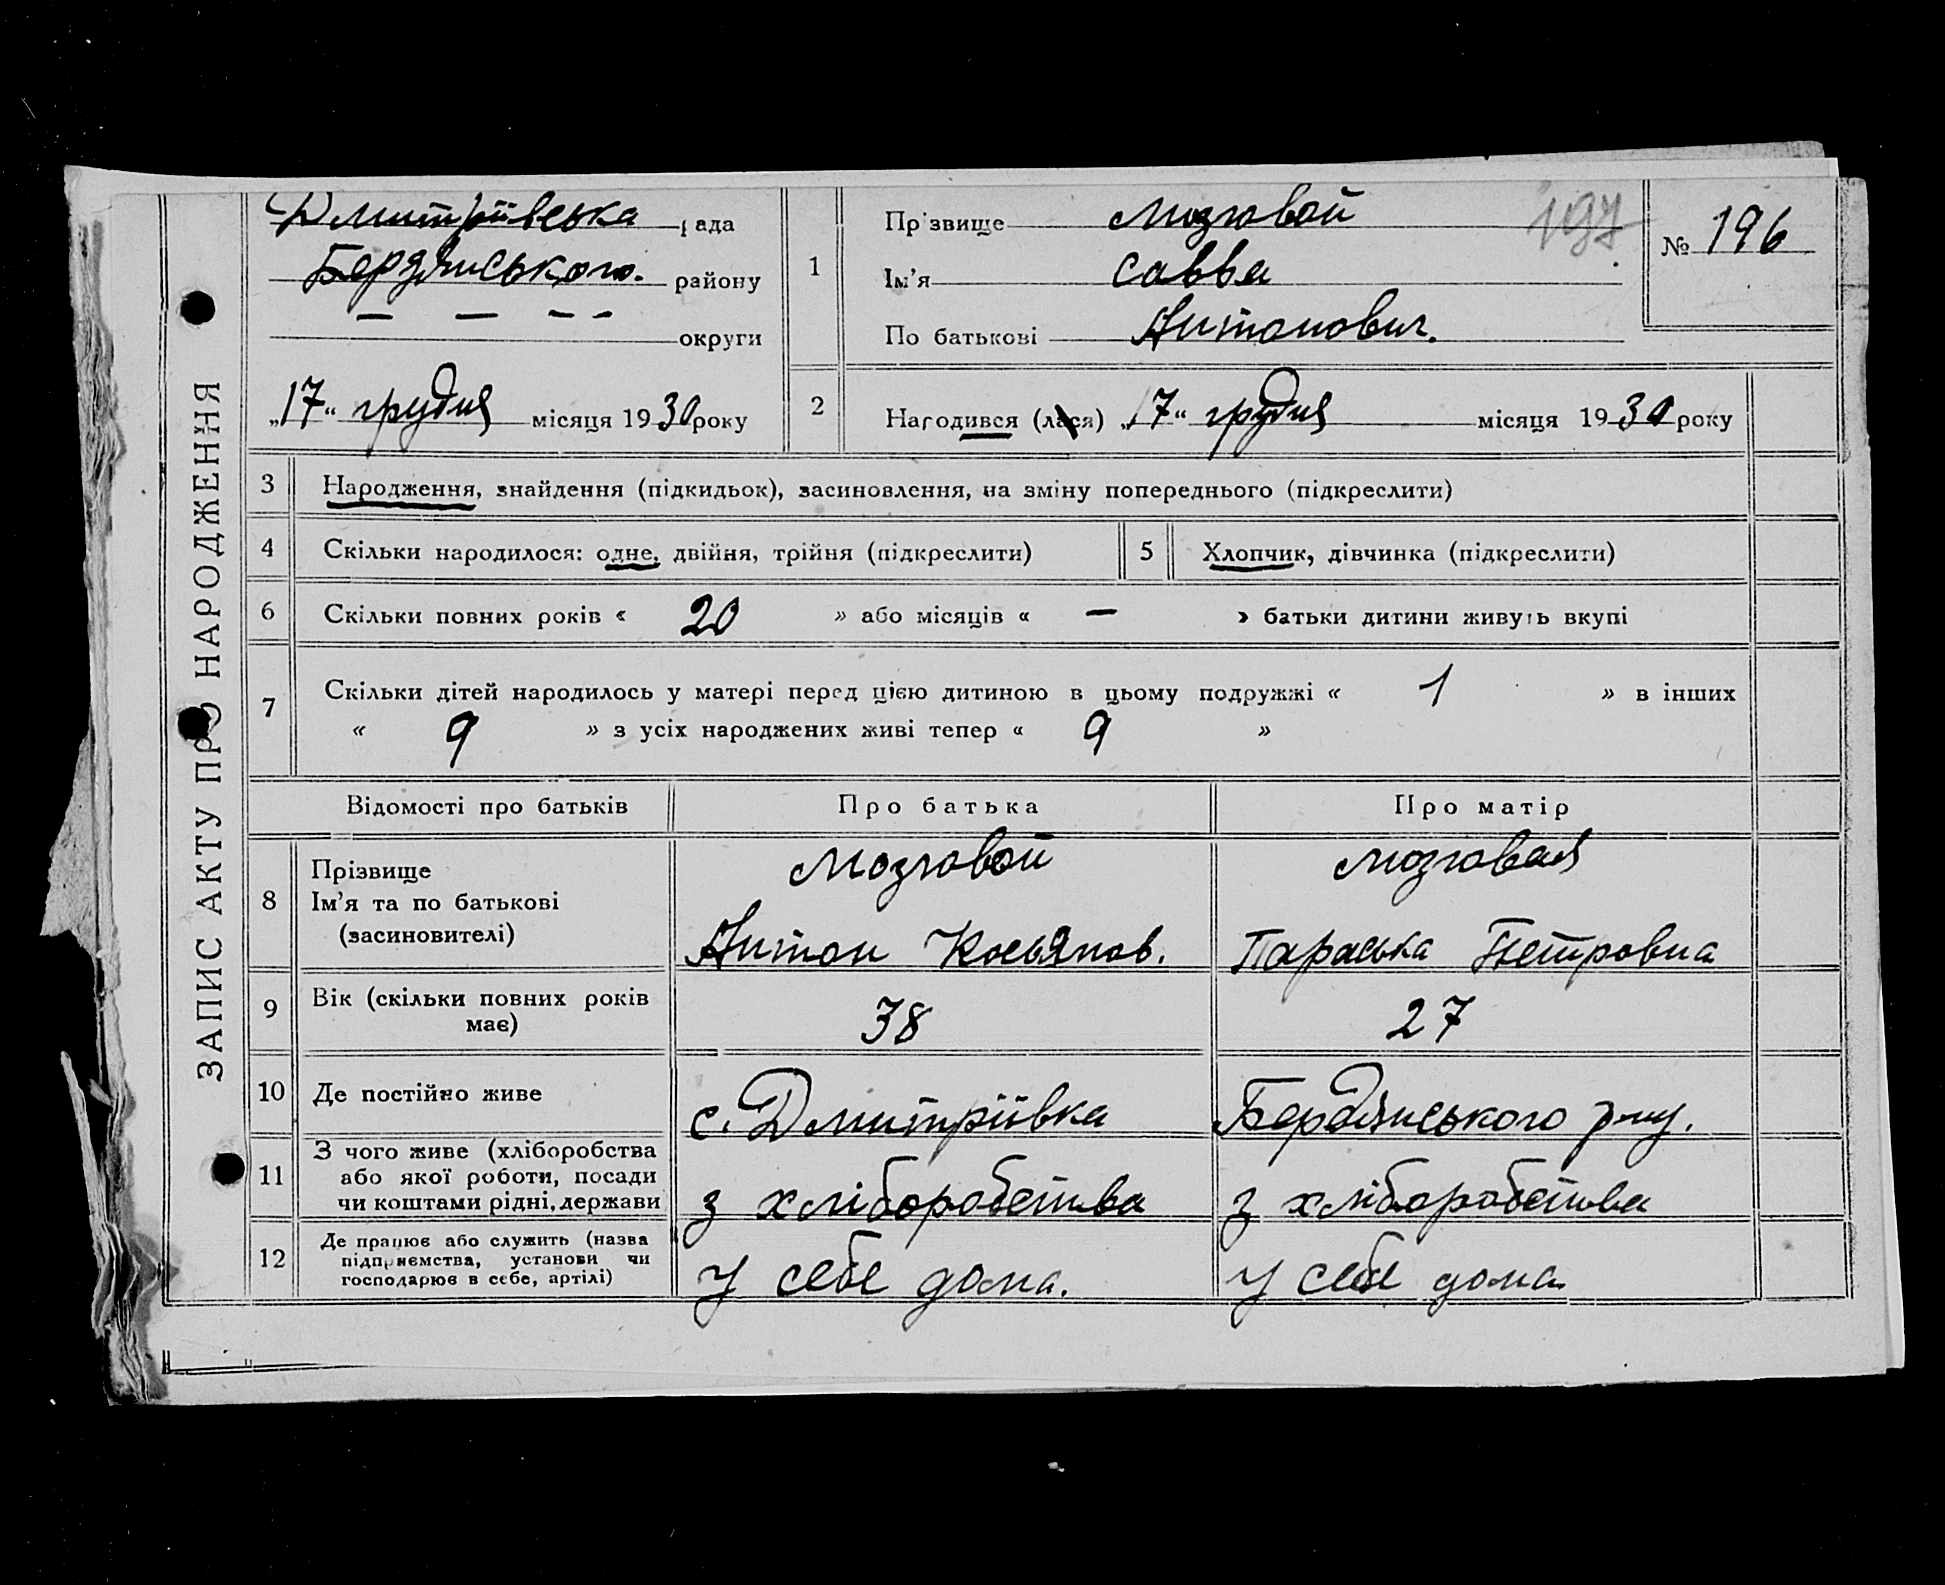 ЗАПИС АКТУ ПРО НАРОДЖЕННЯ
Дмитріївська рада
Бердянського. району
— — — — округи
„17“ грудня місяця 1930 року
1 Прізвище Мозговой
Ім'я Савва
По батькові Антонович.
197
№ 196
2 Народився (лася) „17“ грудня місяця 1930 року
3 Народження, знайдення (підкидьок), засиновлення, на зміну попереднього (підкреслити)
4 Скільки народилося: одне, двійня, трійня (підкреслити) 5 Хлопчик, дівчинка (підкреслити)
6 Скільки повних років « 20 » або місяців « — » батьки дитини живуть вкупі
7 Скільки дітей народилось у матері перед цією дитиною в цьому подружжі « 1 » в інших
« 9 » з усіх народжених живі тепер « 9 »
Відомості про батьків Про батька Про матір
8 Прізвище Ім'я та по батькові (засиновителі)
Мозговой Мозговая
Антон Косьянов. Параська Петровна
9 Вік (скільки повних років має) 38 27
10 Де постійно живе с. Дмитріївка Бердянського р-ну.
11 З чого живе (хліборобства
або якої роботи, посади
чи коштами рідні, держави
з хліборобства з хліборобства
12 Де працює або служить (назва
підприємства, установи чи
господарює в себе, артілі)
у себе дома. у себе дома.